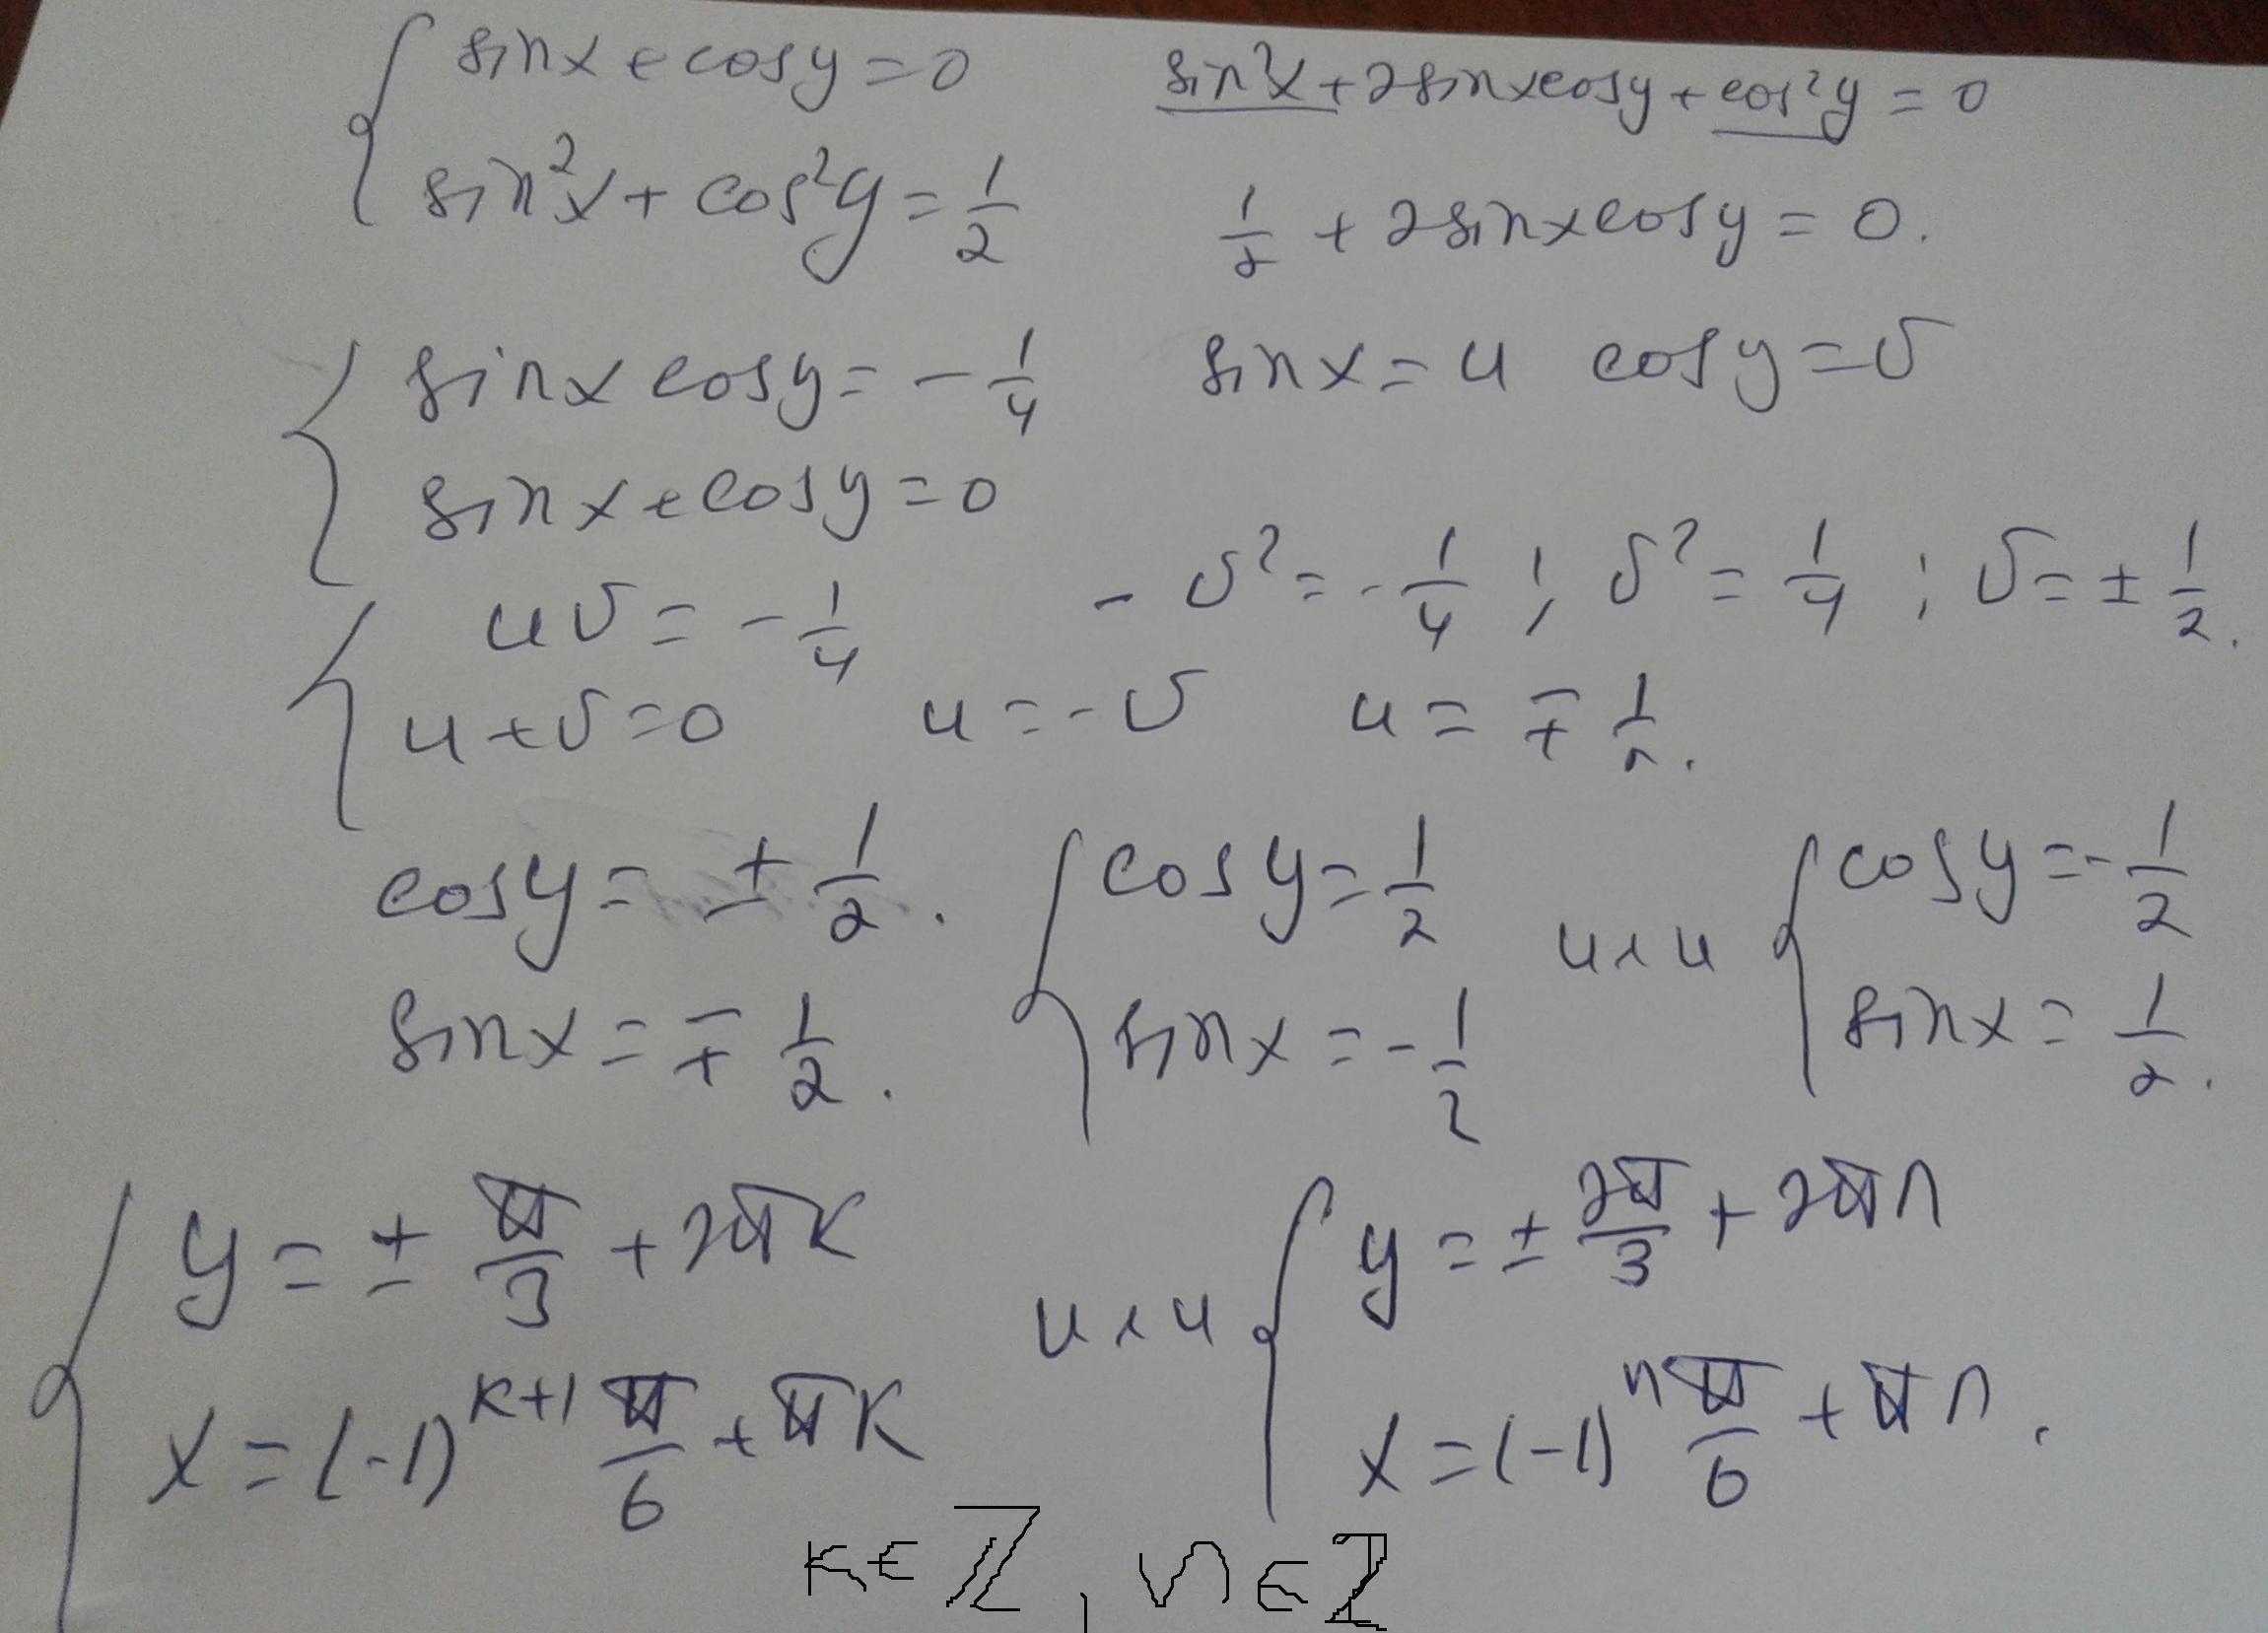 sinx + cosy = 0
sin²x + 2sinxcosy + cos²y = 0
sin²x + cos²y = 1/2
1/2 + 2sinxcosy = 0.
sinx cosy = -1/4
sinx = u cosy = v
sinx + cosy = 0
uv = -1/4
-v² = -1/4 ; v² = 1/4 ; v = ± 1/2.
u + v = 0 u = -v u = ∓ 1/2.
cosy = ± 1/2.
sinx = ∓ 1/2.
cosy = 1/2
sinx = -1/2
или
cosy = -1/2
sinx = 1/2.
y = ± π/3 + 2πk
x = (-1)^(k+1) π/6 + πk
или
y = ± 2π/3 + 2πn
x = (-1)^n π/6 + πn.
k∈ℤ, n∈ℤ